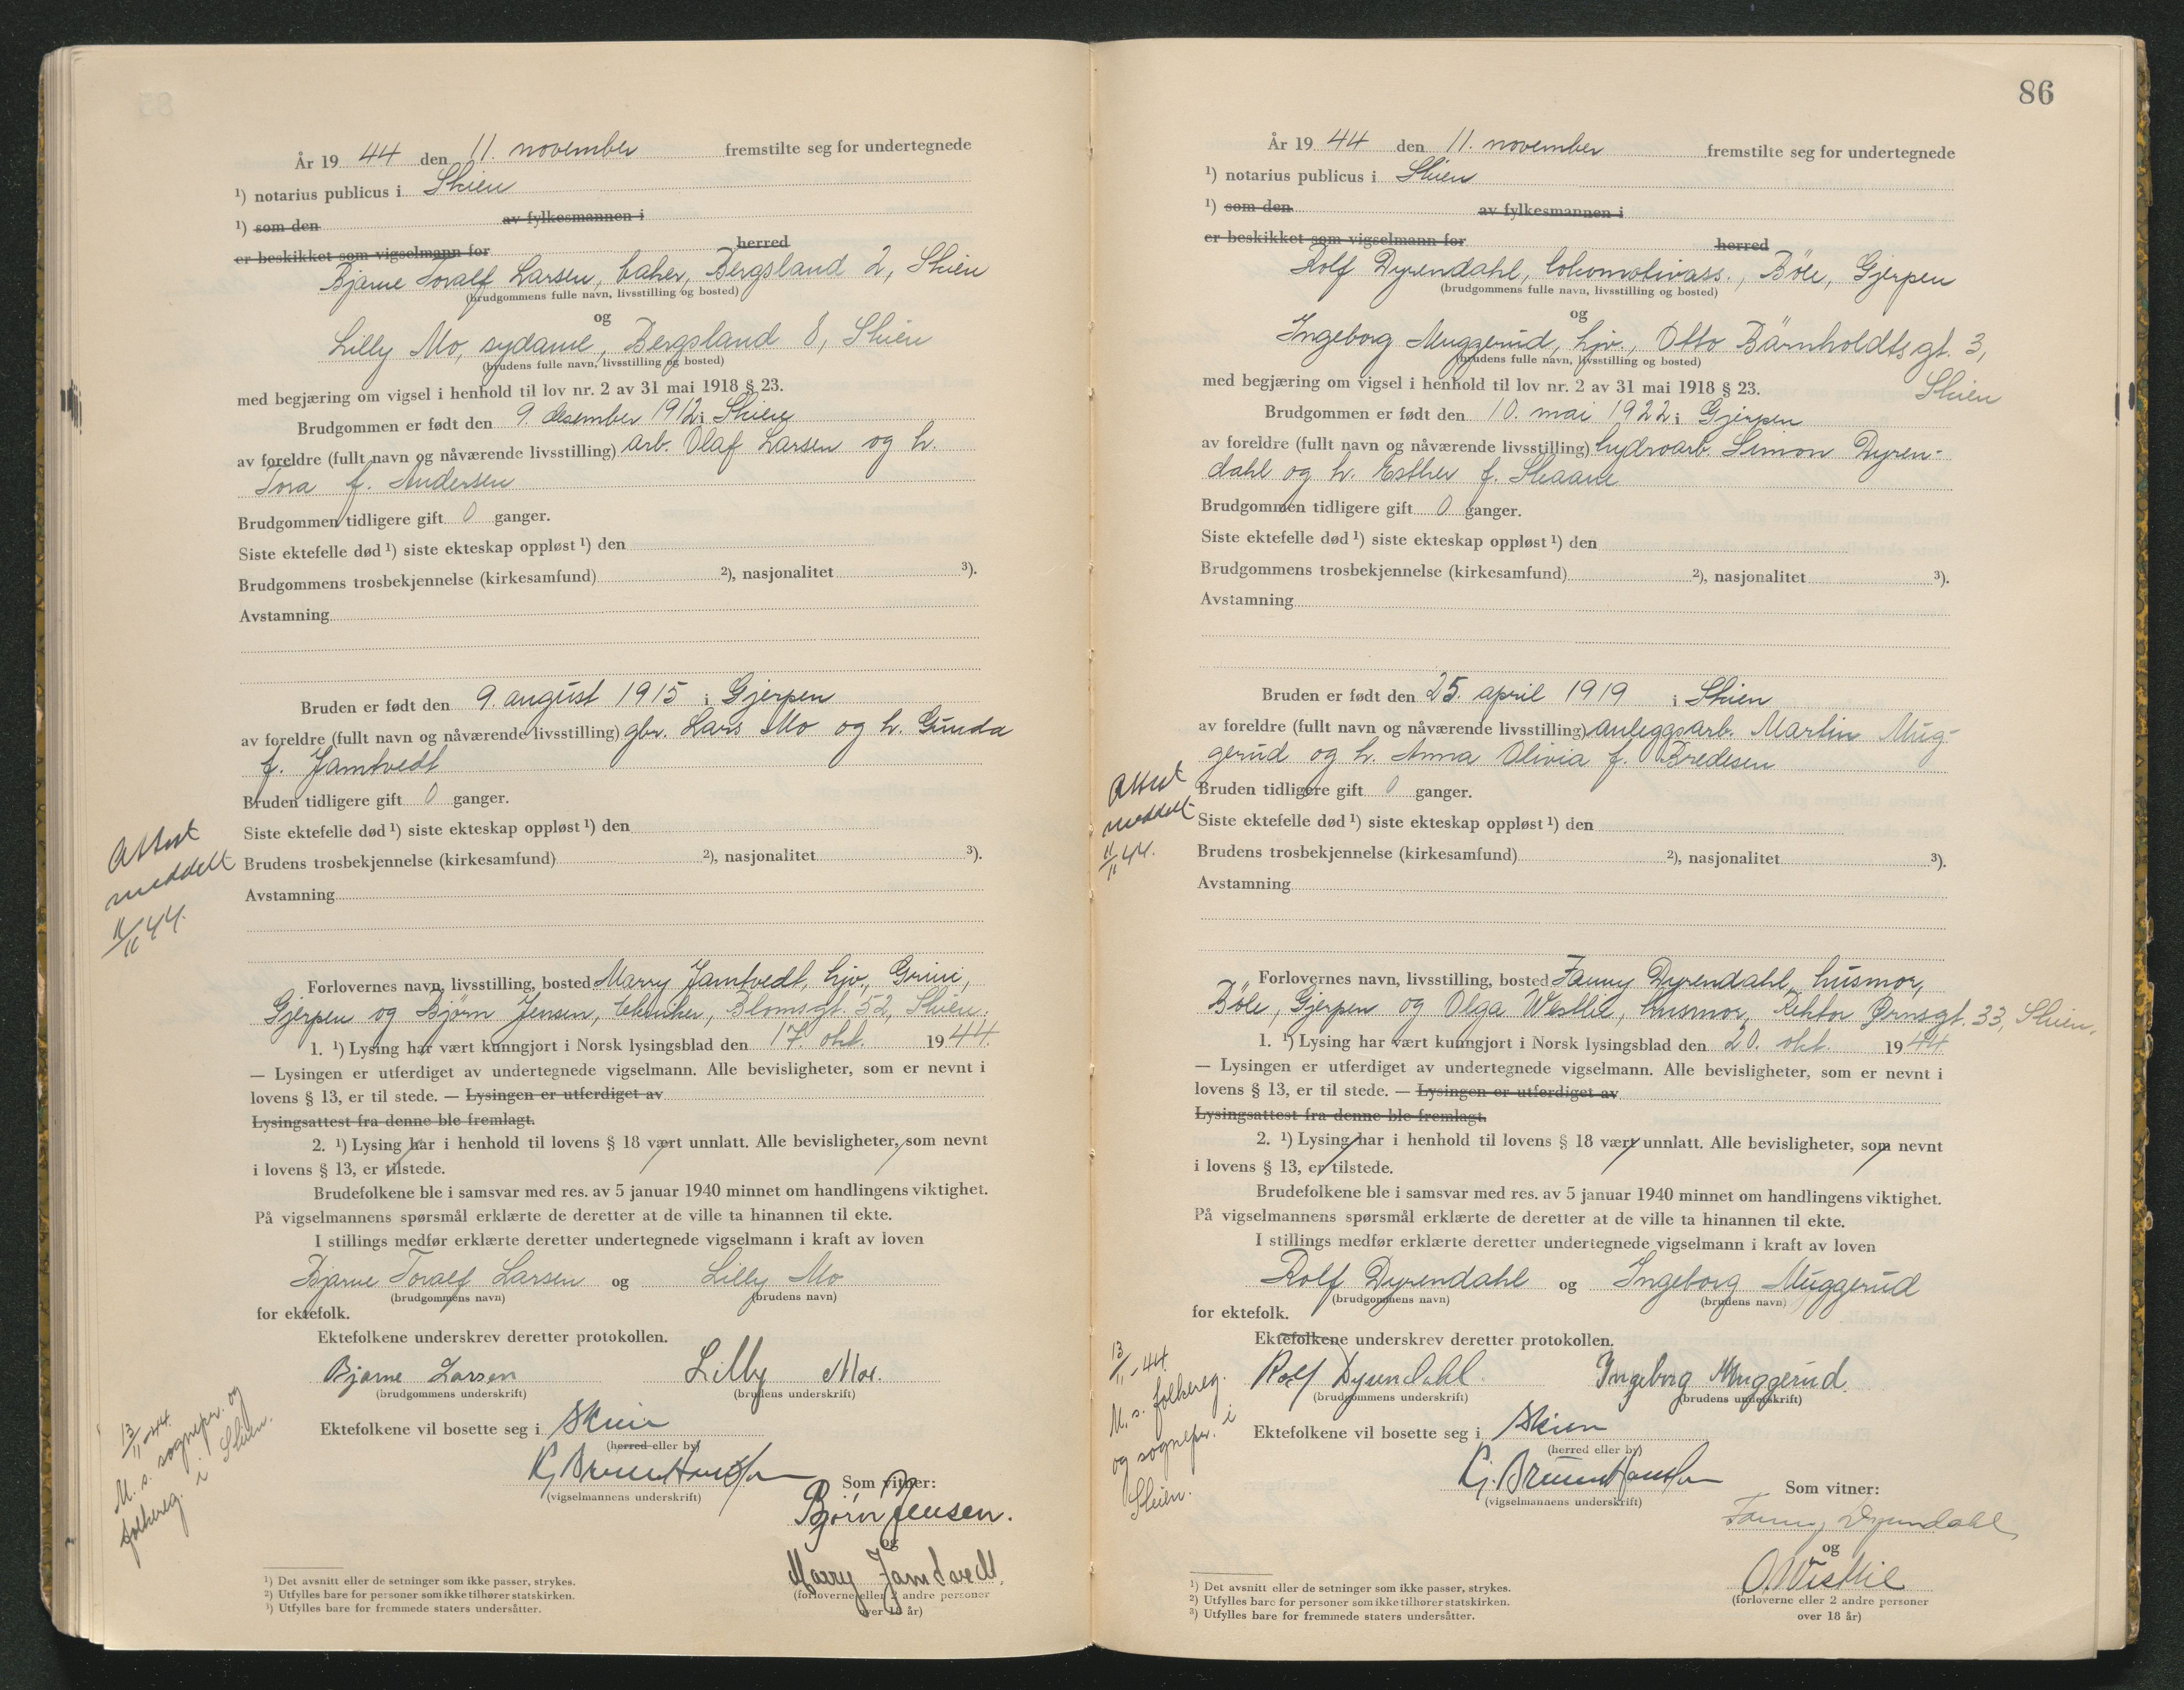 År 19 44 den 11. november fremstilte seg for undertegnede
¹) notarius publicus i Skien
¹) som den av fylkesmannen i
er beskikket som vigselmann for herred
Bjarne Toralf Larsen, baker, Bergsland 2, Skien
(brudgommens fulle navn, livsstilling og bosted)
og
Lilly Mo, sydame, Bergsland 8, Skien
(brudens fulle navn, livsstilling og bosted)
med begjæring om vigsel i henhold til lov nr. 2 av 31 mai 1918 § 23.
Brudgommen er født den 9. desember 1912 i Skien
av foreldre (fullt navn og nåværende livsstilling) arb. Olaf Larsen og h.
Tora f. Andersen
Brudgommen tidligere gift 0 ganger.
Siste ektefelle død ¹) siste ekteskap oppløst ¹) den
Brudgommens trosbekjennelse (kirkesamfund) ²), nasjonalitet ³).
Avstamning
Bruden er født den 9. august 1915 i Gjerpen
av foreldre (fullt navn og nåværende livsstilling) gbr. Lars Mo og h. Gunda
f. Jamtvedt
Bruden tidligere gift 0 ganger.
Siste ektefelle død ¹) siste ekteskap oppløst ¹) den
Brudens trosbekjennelse (kirkesamfund) ²), nasjonalitet ³).
Avstamning
Attest
meddelt
11/11 44.
Forlovernes navn, livsstilling, bosted Marry Jamtvedt, hjv., Grini,
Gjerpen og Bjørn Jensen, tekniker, Blomsgt. 52, Skien.
1. ¹) Lysing har vært kunngjort i Norsk lysingsblad den 17. okt. 1944.
— Lysingen er utferdiget av undertegnede vigselmann. Alle bevisligheter, som er nevnt i
lovens § 13, er til stede. — Lysingen er utferdiget av
Lysingsattest fra denne ble fremlagt.
2. ¹) Lysing har i henhold til lovens § 18 vært unnlatt. Alle bevisligheter, som nevnt
i lovens § 13, er tilstede.
Brudefolkene ble i samsvar med res. av 5 januar 1940 minnet om handlingens viktighet.
På vigselmannens spørsmål erklærte de deretter at de ville ta hinannen til ekte.
I stillings medfør erklærte deretter undertegnede vigselmann i kraft av loven
Bjarne Toralf Larsen og Lilly Mo
(brudgommens navn) (brudens navn)
for ektefolk.
Ektefolkene underskrev deretter protokollen.
Bjarne Larsen Lilly Mo.
(brudgommens underskrift) (brudens underskrift)
Ektefolkene vil bosette seg i Skien
(herred eller by)
(vigselmannens underskrift)
Som vitner:
Bjørn Jensen.
og
Marry Jamtvedt.
(forloverne eller 2 andre personer
over 18 år)
13/11 -44.
M. s. sognepr. og
folkereg. i Skien.
¹) Det avsnitt eller de setninger som ikke passer, strykes.
²) Utfylles bare for personer som ikke tilhører statskirken.
³) Utfylles bare for fremmede staters undersåtter.
86
År 19 44 den 11. november fremstilte seg for undertegnede
¹) notarius publicus i Skien
¹) som den av fylkesmannen i
er beskikket som vigselmann for herred
Rolf Dyrendahl, lokomotivass., Bøle, Gjerpen
(brudgommens fulle navn, livsstilling og bosted)
og
Ingeborg Muggerud, hjv., Otto Bärnholdtsgt. 3,
(brudens fulle navn, livsstilling og bosted)
med begjæring om vigsel i henhold til lov nr. 2 av 31 mai 1918 § 23. Skien
Brudgommen er født den 10. mai 1922 i Gjerpen
av foreldre (fullt navn og nåværende livsstilling) hydroarb. Simon Dyren-
dahl og h. Esther f. Skaare
Brudgommen tidligere gift 0 ganger.
Siste ektefelle død ¹) siste ekteskap oppløst ¹) den
Brudgommens trosbekjennelse (kirkesamfund) ²), nasjonalitet ³).
Avstamning
Bruden er født den 25. april 1919 i Skien
av foreldre (fullt navn og nåværende livsstilling) anleggsarb. Martin Mug-
gerud og h. Anna Olivia f. Bredesen
Bruden tidligere gift 0 ganger.
Siste ektefelle død ¹) siste ekteskap oppløst ¹) den
Brudens trosbekjennelse (kirkesamfund) ²), nasjonalitet ³).
Avstamning
Attest
meddelt
11/11 44.
Forlovernes navn, livsstilling, bosted Fanny Dyrendahl, husmor,
Bøle, Gjerpen og Olga Westlie, husmor, Rektor Ørnsgt. 33, Skien.
1. ¹) Lysing har vært kunngjort i Norsk lysingsblad den 20. okt. 1944.
— Lysingen er utferdiget av undertegnede vigselmann. Alle bevisligheter, som er nevnt i
lovens § 13, er til stede. — Lysingen er utferdiget av
Lysingsattest fra denne ble fremlagt.
2. ¹) Lysing har i henhold til lovens § 18 vært unnlatt. Alle bevisligheter, som nevnt
i lovens § 13, er tilstede.
Brudefolkene ble i samsvar med res. av 5 januar 1940 minnet om handlingens viktighet.
På vigselmannens spørsmål erklærte de deretter at de ville ta hinannen til ekte.
I stillings medfør erklærte deretter undertegnede vigselmann i kraft av loven
Rolf Dyrendahl og Ingeborg Muggerud
(brudgommens navn) (brudens navn)
for ektefolk.
Ektefolkene underskrev deretter protokollen.
Rolf Dyrendahl. Ingeborg Muggerud.
(brudgommens underskrift) (brudens underskrift)
Ektefolkene vil bosette seg i Skien
(herred eller by)
(vigselmannens underskrift)
Som vitner:
Fanny Dyrendahl
og
O. Westlie
(forloverne eller 2 andre personer
over 18 år)
13/11 -44.
M. s. folkereg.
og sognepr. i
Skien.
¹) Det avsnitt eller de setninger som ikke passer, strykes.
²) Utfylles bare for personer som ikke tilhører statskirken.
³) Utfylles bare for fremmede staters undersåtter.